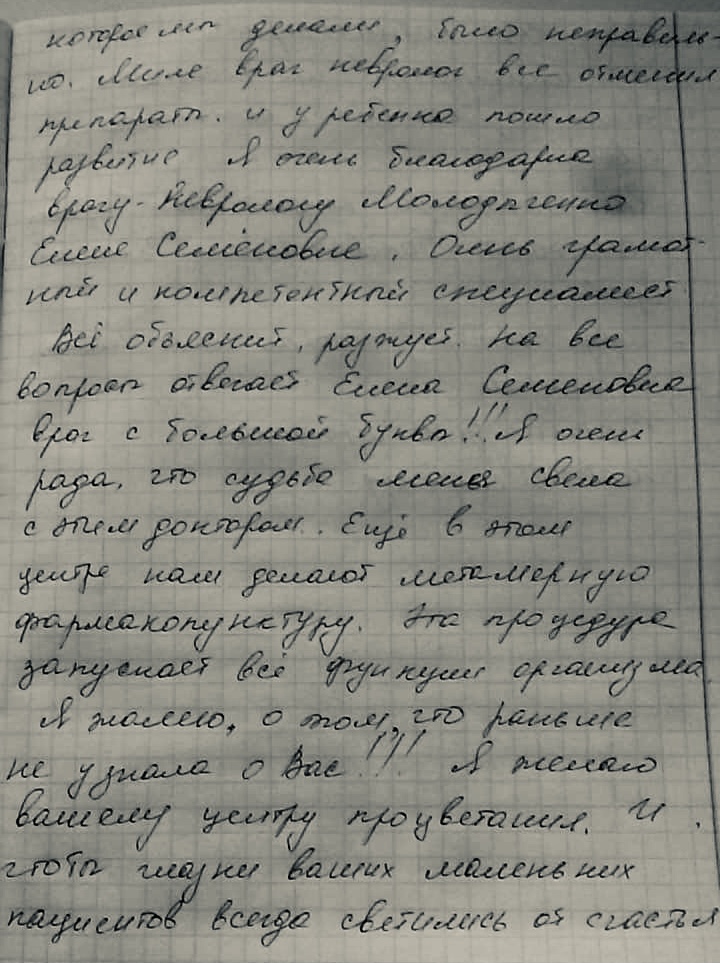 которое мы делали, было неправиль-
но. Миле врач невролог все отменил
препараты. и у ребенка пошло
развитие Я очень благодарна
врачу-Неврологу Молодыченко
Елене Семёновне. Очень грамот-
ный и компетентный специалист.
Всё объяснит, разжует. На все
вопросы отвечает Елена Семеновна
врач с большой буквы!!! Я очень
рада, что судьба меня свела
с этим доктором. Ещё в этом
центре нам делают метамерную
фармакопунктуру. Эта процедура
запускает всё функции организма.
Я жалею, о том, что раньше
не узнала о Вас!!! Я желаю
вашему центру процветания. И
чтобы глазки ваших маленьких
пациентов всегда светились от счастья